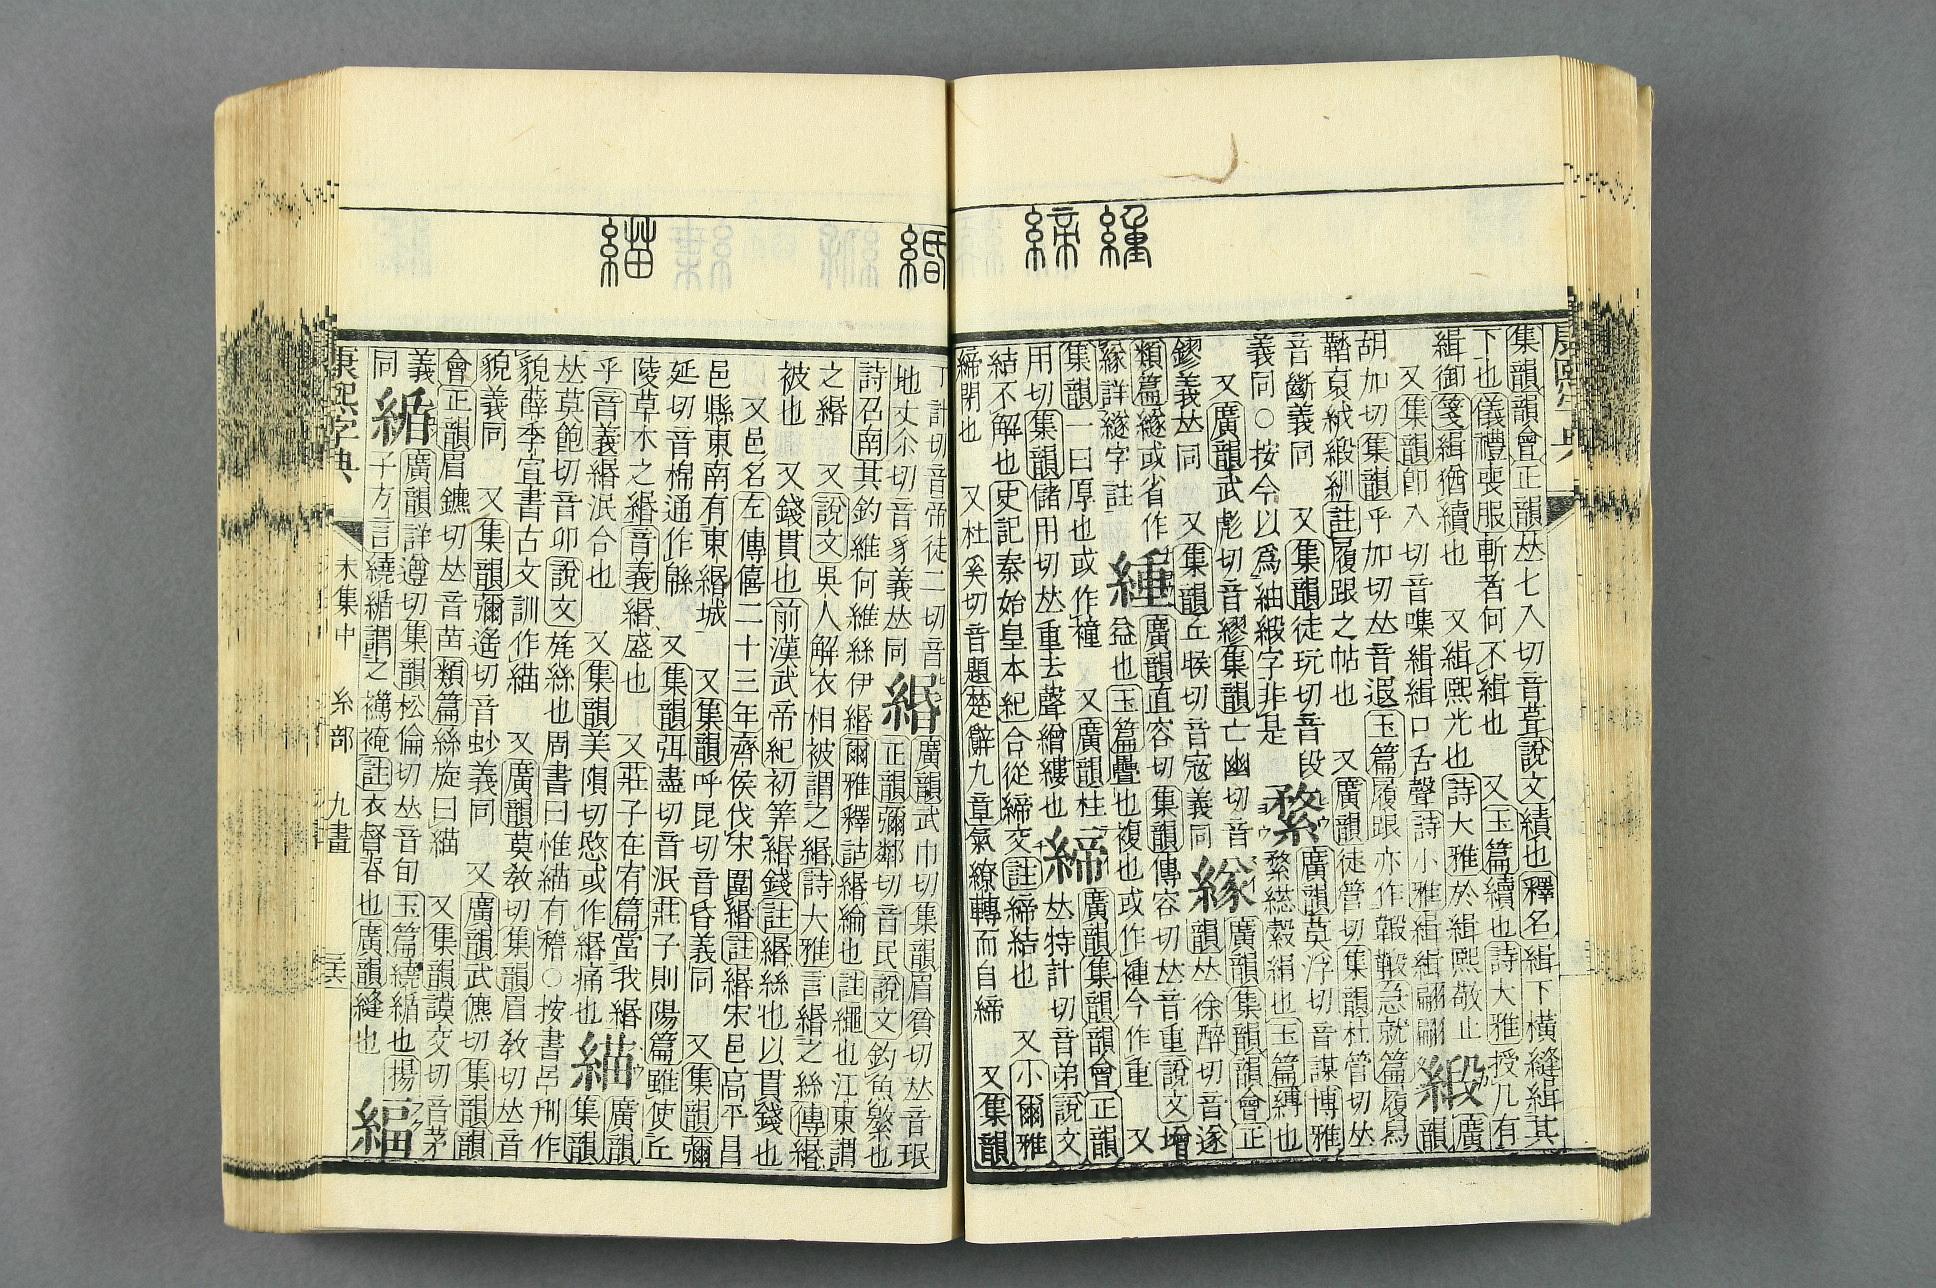 緟 締
康熙字典
集韻韻會正韻𠀤七入切音葺說文績也釋名緝下橫縫緝其
下也儀禮喪服斬者何不緝也 又玉篇續也詩大雅授几有
緝御箋緝猶續也 又緝熙光也詩大雅於緝熙敬止 緞 廣
又集韻卽入切音喋緝緝口舌聲詩小雅緝緝翩翩 韻
胡加切集韻乎加切𠀤音遐玉篇履跟亦作 急就篇履舄
鞜裒絨緞紃註履跟之帖也 又廣韻徒管切集韻杜管切𠀤
音斷義同 又集韻徒玩切音段 䋷 廣韻莫浮切音謀博雅
義同○按今以爲紬緞字非是 䋷綛縠絹也玉篇縛也
又廣韻武彪切音繆集韻亡幽切音 䍁 廣韻集韻韻會正
繆義𠀤同 又集韻丘𠋫切音寇義同 韻𠀤徐醉切音遂
類篇繸或省作 緟 廣韻直容切集韻傳容切𠀤音重說文增
䍁詳繸字註 益也玉篇疊也複也或作褈今作重 又
集韻一曰厚也或作褈 又廣韻柱 締 廣韻集韻韻會正韻
用切集韻儲用切𠀤重去聲繒縷也 𠀤特計切音弟說文
結不解也史記秦始皇本紀合從締交註締結也 又小爾雅
締閉也 又杜奚切音題楚辭九章氣繚轉而自締 又集韻
緡 緢
丁計切音帝徒二切音 緡 廣韻武巾切集韻眉貧切𠀤音珉
地丈尒切音豸義𠀤同 正韻彌鄰切音民說文釣魚繁也
詩召南其釣維何維絲伊緡爾雅釋詁緡綸也註繩也江東謂
之緡 又說文吳人解衣相被謂之緡詩大雅言緡之絲傳緡
被也 又錢貫也前漢武帝紀初筭緡錢註緡絲也以貫錢也
又邑名左傳僖二十三年齊侯伐宋圍緡註緡宋邑高平昌
邑縣東南有東緡城 又集韻呼昆切音昏義同 又集韻彌
延切音棉通作緜 又集韻弭盡切音泯莊子則陽篇雖使丘
陵草木之緡音義緡盛也 又莊子在宥篇當我緡 廣韻
乎音義緡泯合也 又集韻美隕切愍或作緡痛也 緢 集韻
𠀤莫飽切音卯說文旄絲也周書曰惟緢有稽○按書呂刑作
貌薛季宣書古文訓作緢 又廣韻莫敎切集韻眉敎切𠀤音
貌義同 又集韻彌遙切音䖢義同 又廣韻武儦切集韻韻
會正韻眉鑣切𠀤音苗類篇絲旋曰緢 又集韻謨交切音茅
義 廣韻詳遵切集韻松倫切𠀤音旬玉篇繞緧也揚
同 緧 子方言繞緧謂之䙱裺註衣督脊也廣韻縫也 緼
康熙字典
未集中 糸部 九畫